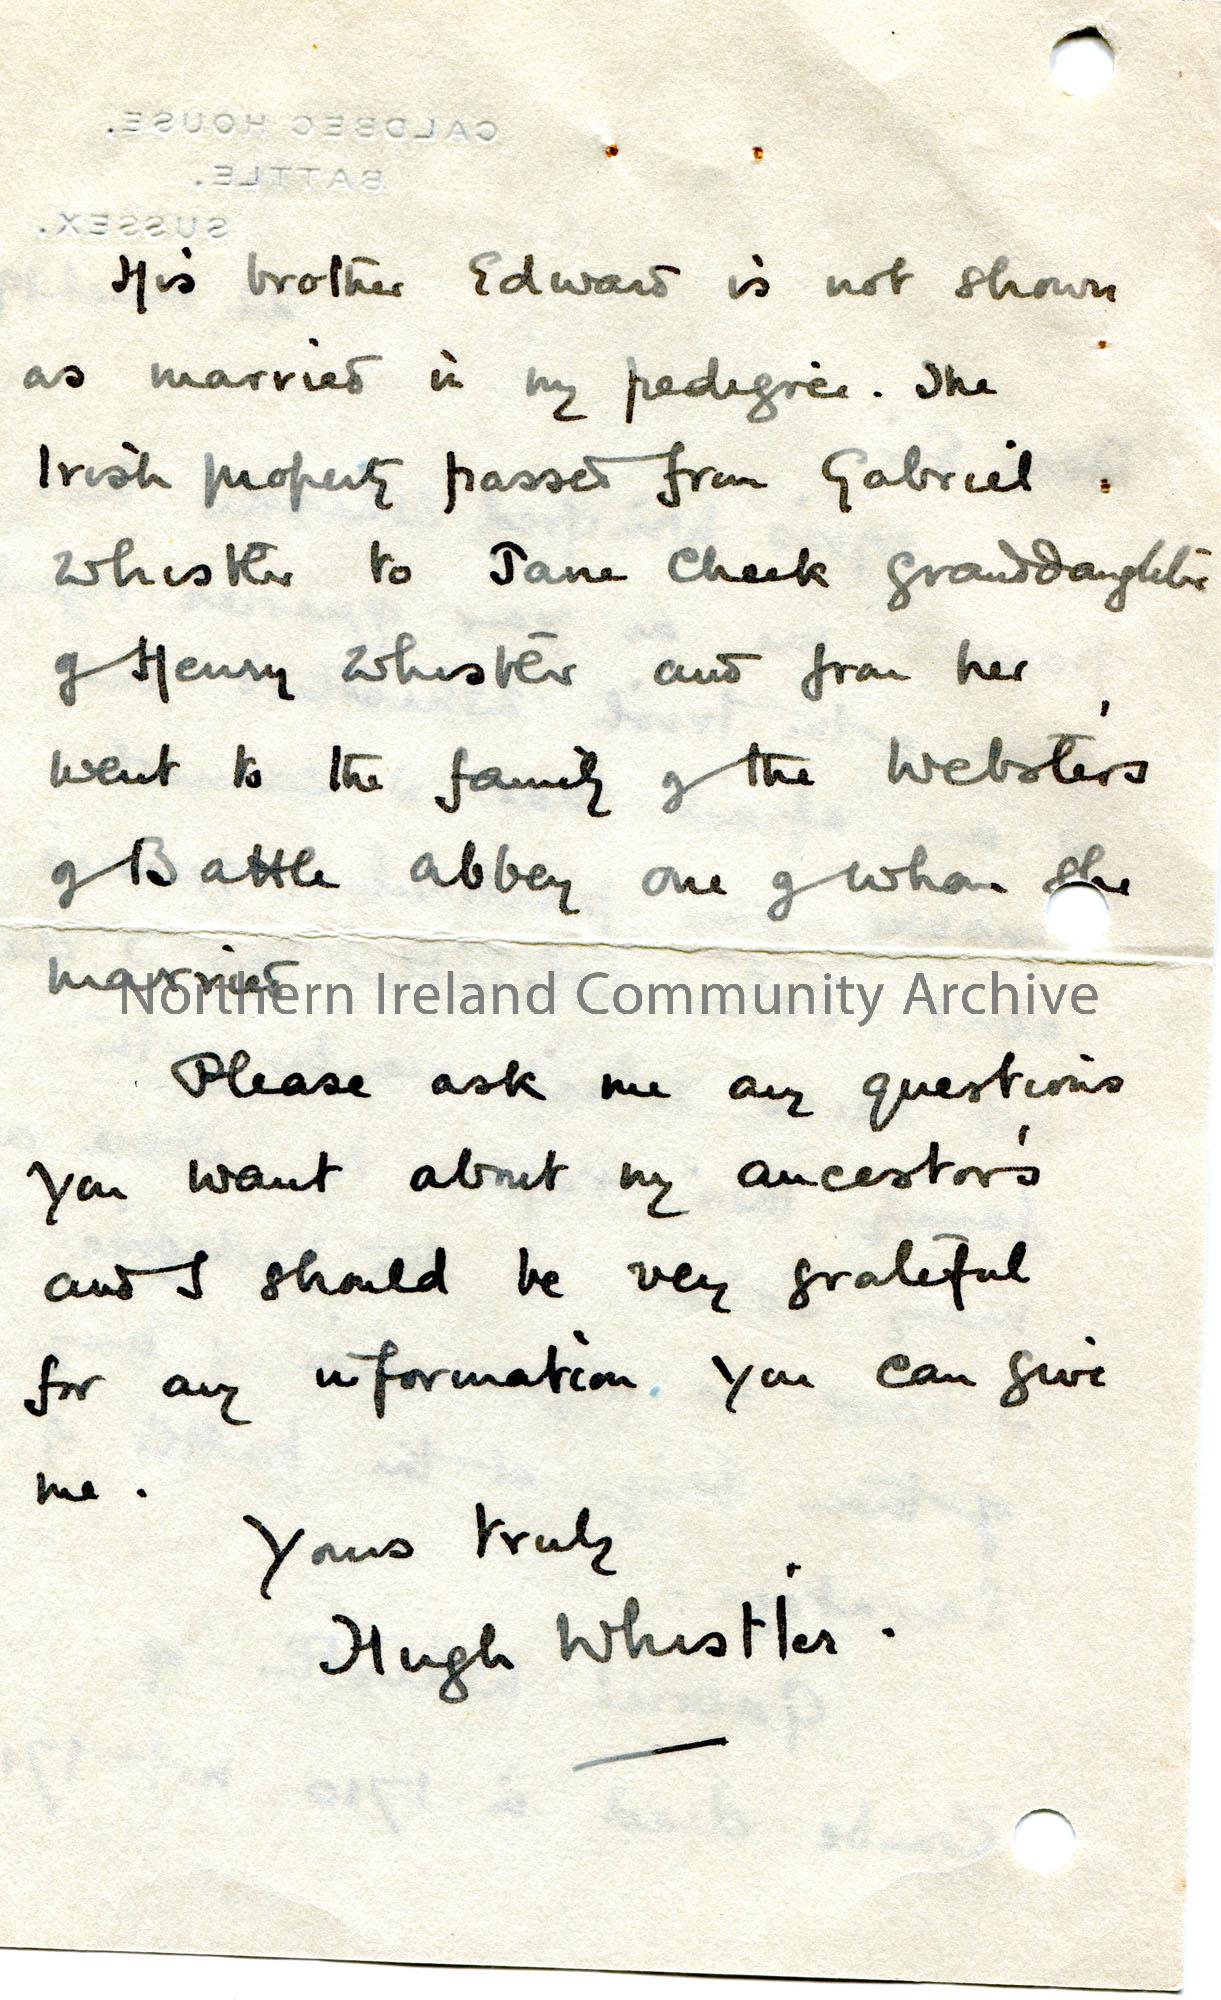 CALDBEC HOUSE,
BATTLE.
SUSSEX.
His brother Edward is not shown
as married in my pedigree. The
Irish property passed from Gabriel
Whistler to Jane Cheek granddaughter
of Henry Whistler and from her
went to the family of the Websters
of Battle abbey one of whom she
married
Northern Ireland Community Archive
Please ask me any questions
you want about my ancestors
and I should be very grateful
for any information you can give
me.
Yours truly
Hugh Whistler.